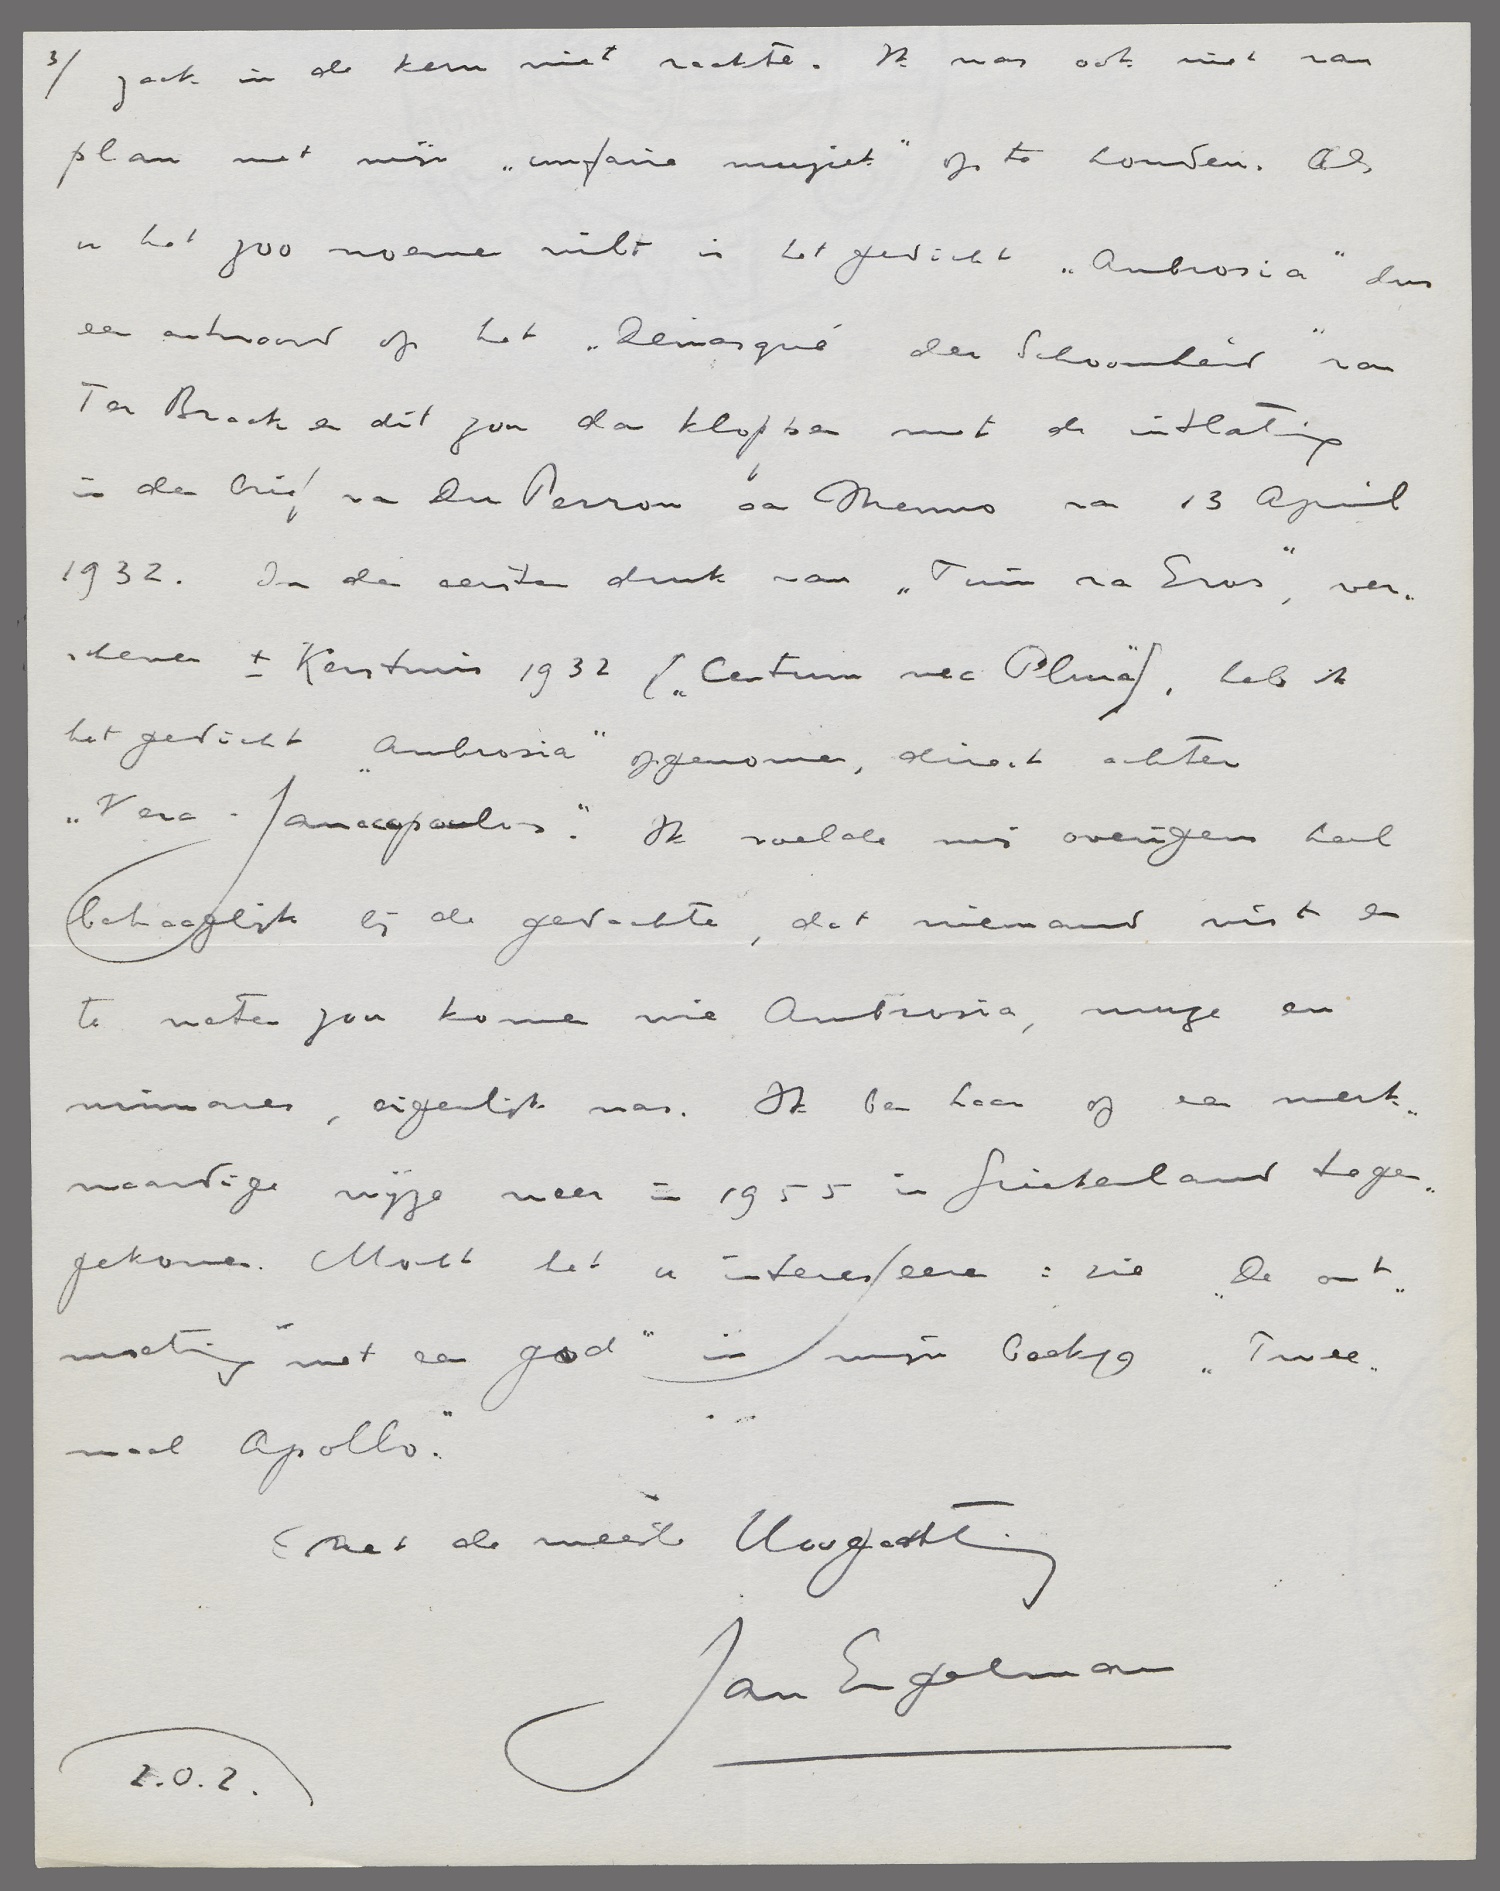 3/ zaak in de kern niet raakte. Ik was ook niet van
plan met mijn „unfaire muziek" op te houden. Als
u het zoo noemen wilt is het gedicht „Ambrosia" dus
een antwoord op het „Démasqué der Schoonheid" van
Ter Braak en dit zou dan kloppen met de uitlating
in den brief van Du Perron aan Menno van 13 April
1932. In den eersten druk van „Tuin van Eros", ver„
schenen ± Kerstmis 1932 („Centrum nec Plura"), heb ik
het gedicht „Ambrosia" opgenomen, direct achter
„Vera Janacopoulos". Ik voelde mij overigens heel
behaaglijk bij de gedachte, dat niemand wist en
te weten zou komen wie Ambrosia, muze en
minnares, eigenlijk was. Ik ben haar op een merk„
waardige wijze weer in 1955 in Griekenland tegen„
gekomen. Mocht het u interesseeren: zie „De ont„
moeting met een god" in mijn boekje „Twee„
maal Apollo."
Met de meeste Hoogachting
Jan Engelman
Z.O.Z.